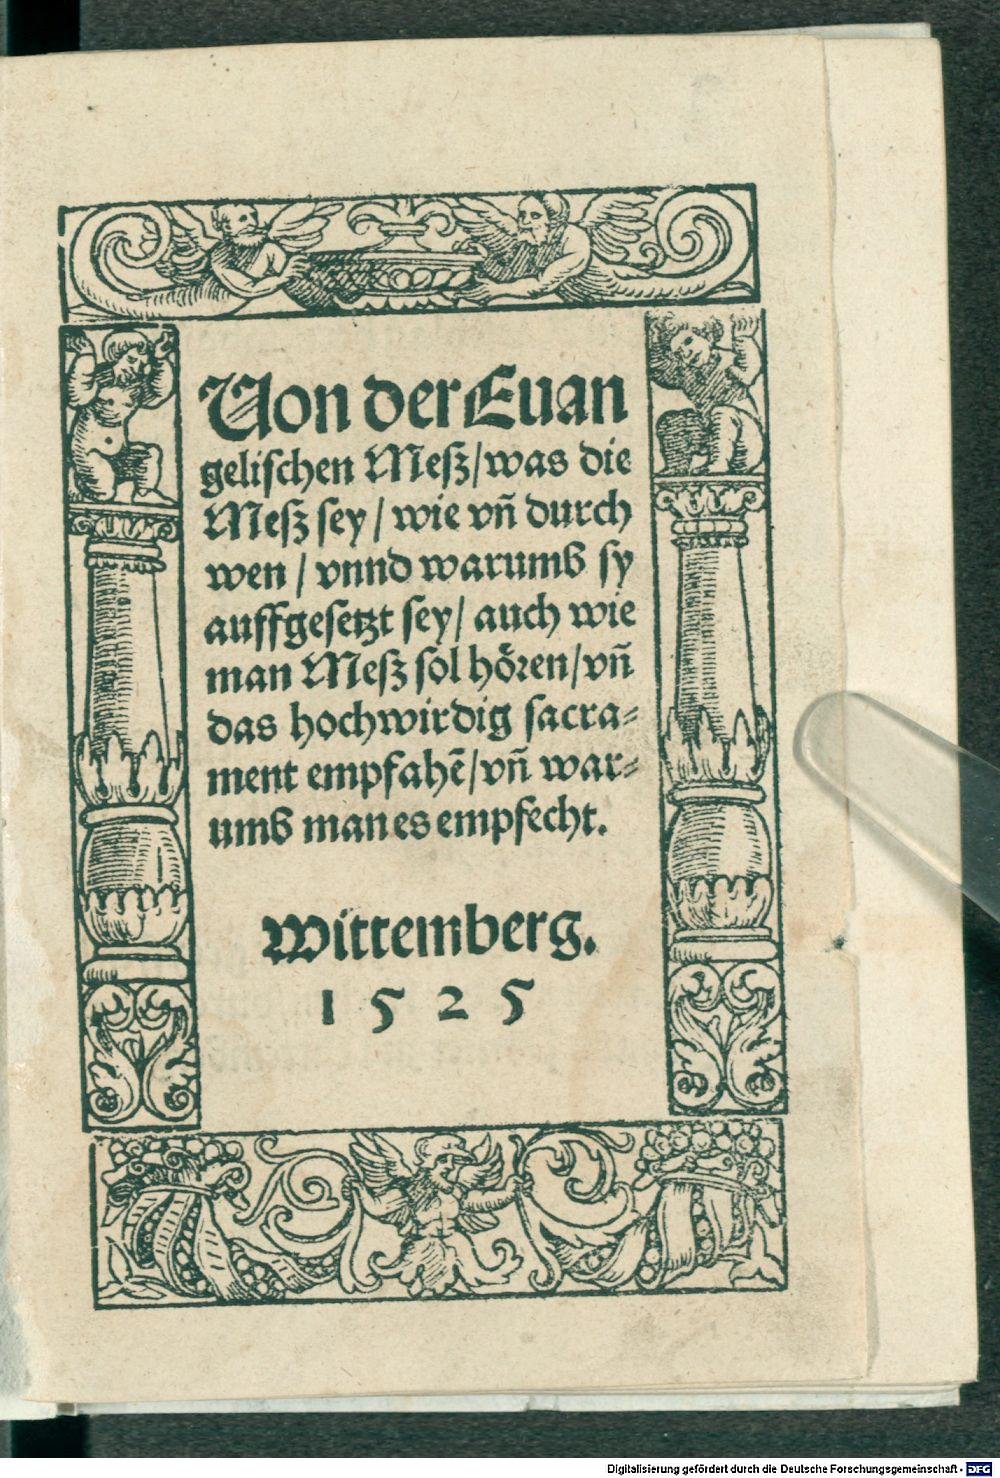 Von der Euan
geliſchen Meſz/was die
Meſz ſey / wie vñ durch
wen / vnnd warumb ſy
auffgeſetzt ſey/ auch wie
man Meſz ſol hoͤren/vñ
das hochwirdig ſacra⸗
ment empfahẽ/vñ war⸗
umb man es empfecht.
Wittemberg.
1525
Digitalisierung gefördert durch die Deutsche Forschungsgemeinschaft - DFG